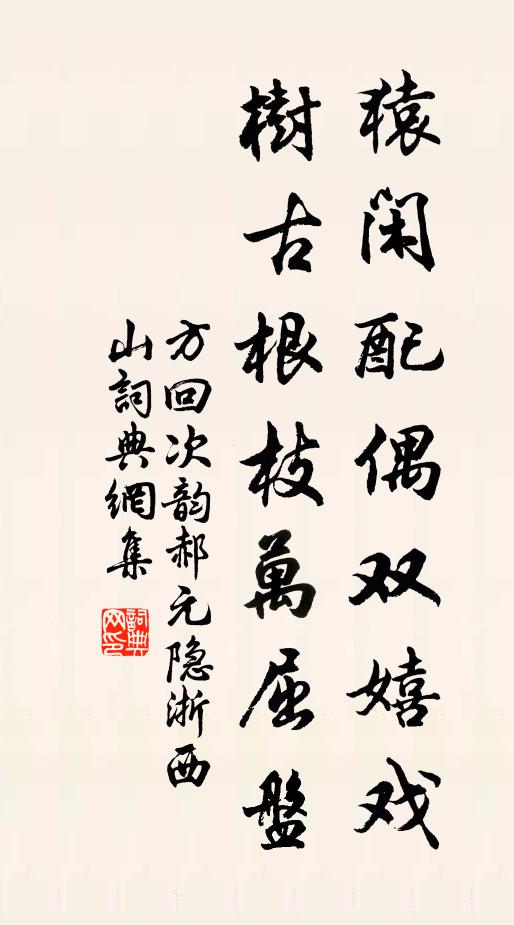 猿闲配偶双嬉戏
樹古根枝萬屈盤
方回次韵郝元隐浙西
山詞典網集
詞典
网印